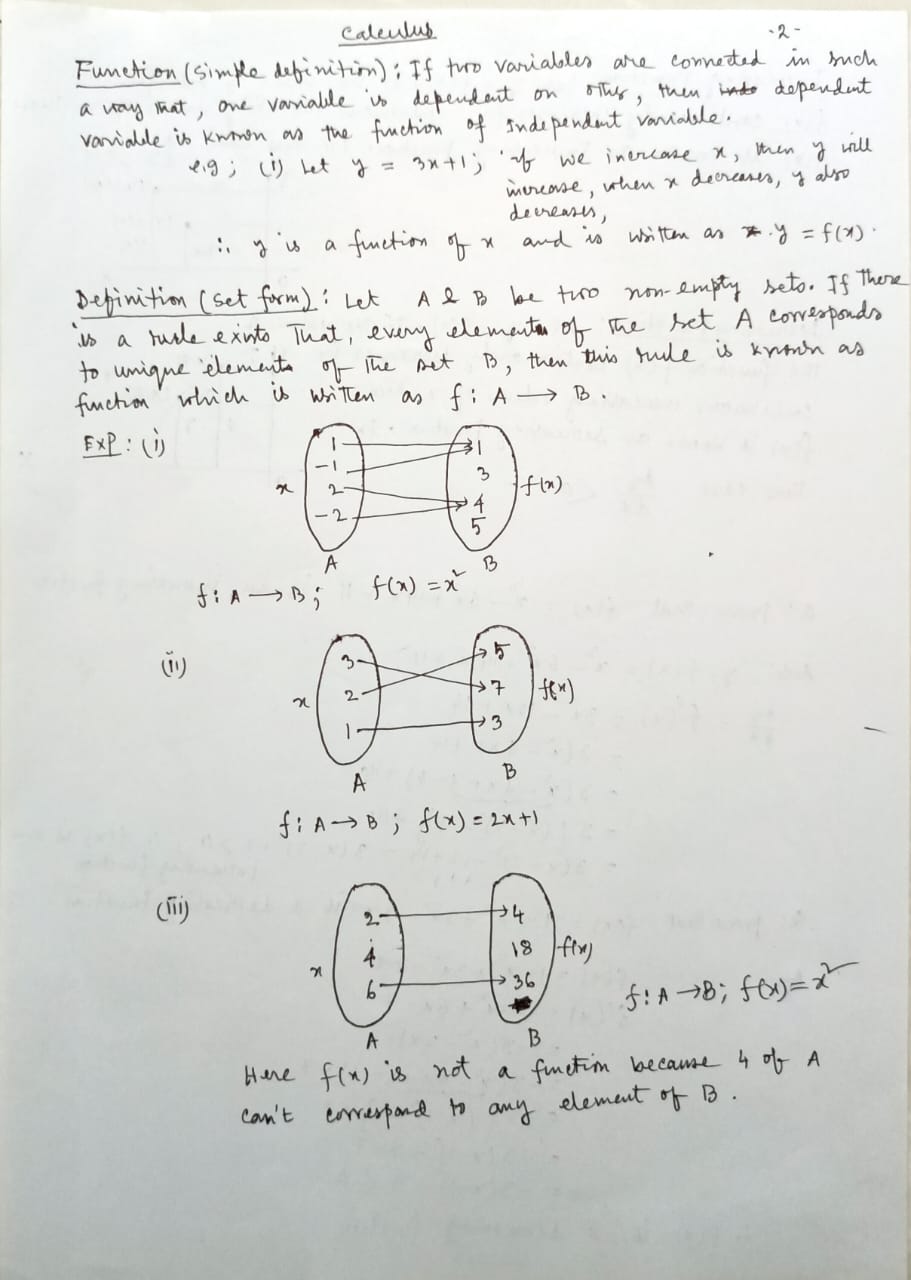 Calculus
-2-
Function (simple definition): If two variables are connected in such
a way that, one variable is dependent on other, then dependent
variable is known as the function of Independent variable.
e.g; (i) Let y = 3x+1; if we increase x, then y will
increase, when x decreases, y also
decreases,
∴ y is a function of x and is written as y = f(x).
Definition (set form): Let A & B be two non-empty sets. If there
is a rule exists that, every elements of the set A corresponds
to unique elements of the set B, then this rule is known as
function which is written as f: A → B.
Exp: (i)
1 1
-1 3
x 2 4 f(x)
-2 5
A B
f: A → B; f(x) = x²
(ii)
3 5
x 2 7 f(x)
1 3
A B
f: A → B; f(x) = 2x+1
(iii)
2 4
4 18 f(x)
x 6 36
f: A → B; f(x) = x²
A B
Here f(x) is not a function because 4 of A
can't correspond to any element of B.